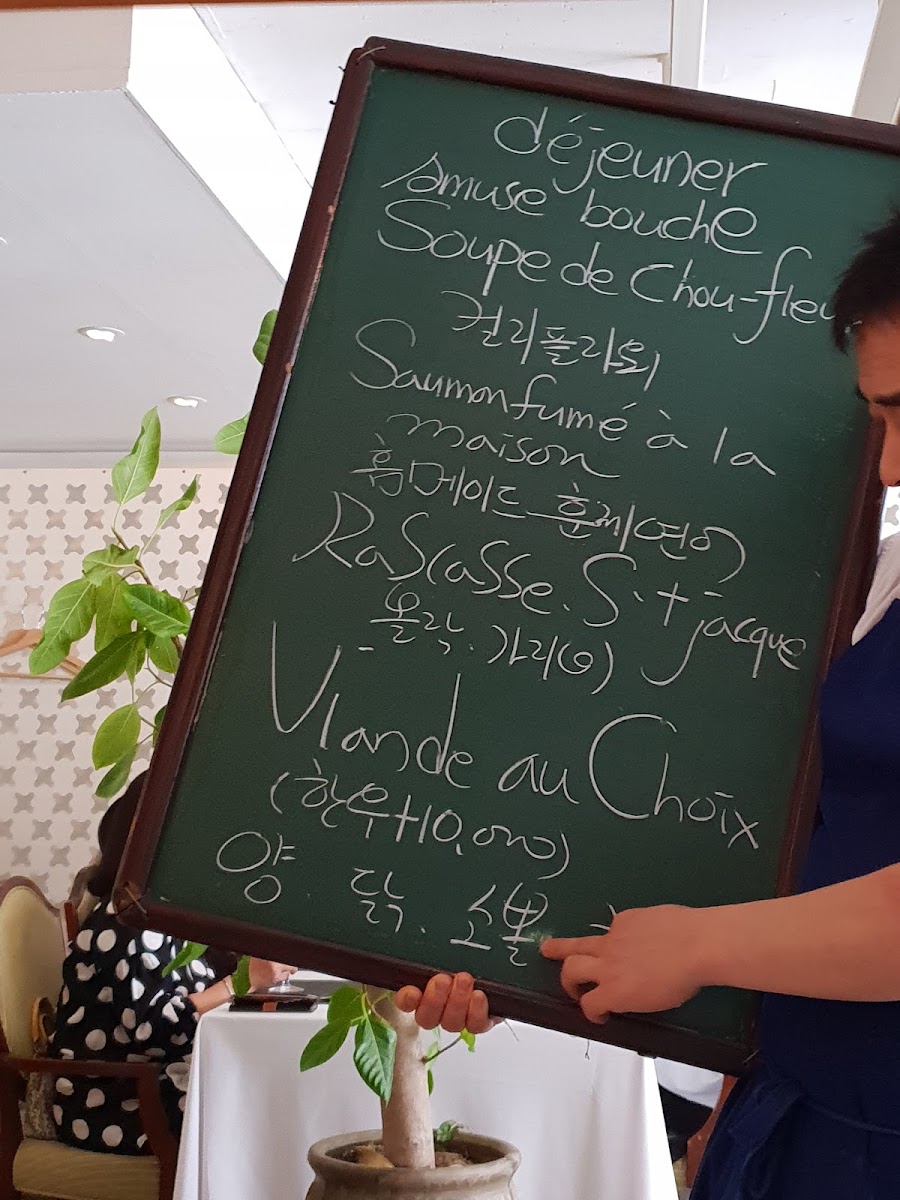 déjeuner
Amuse bouche
Soupe de Chou-fleu
컬리플라워
Saumon fumé à la
maison
홈메이드 훈제연어
Rascasse. S.t jacque
우럭. 가리(비)
Viande au Choix
(한우+10,000)
양. 닭. 소볼